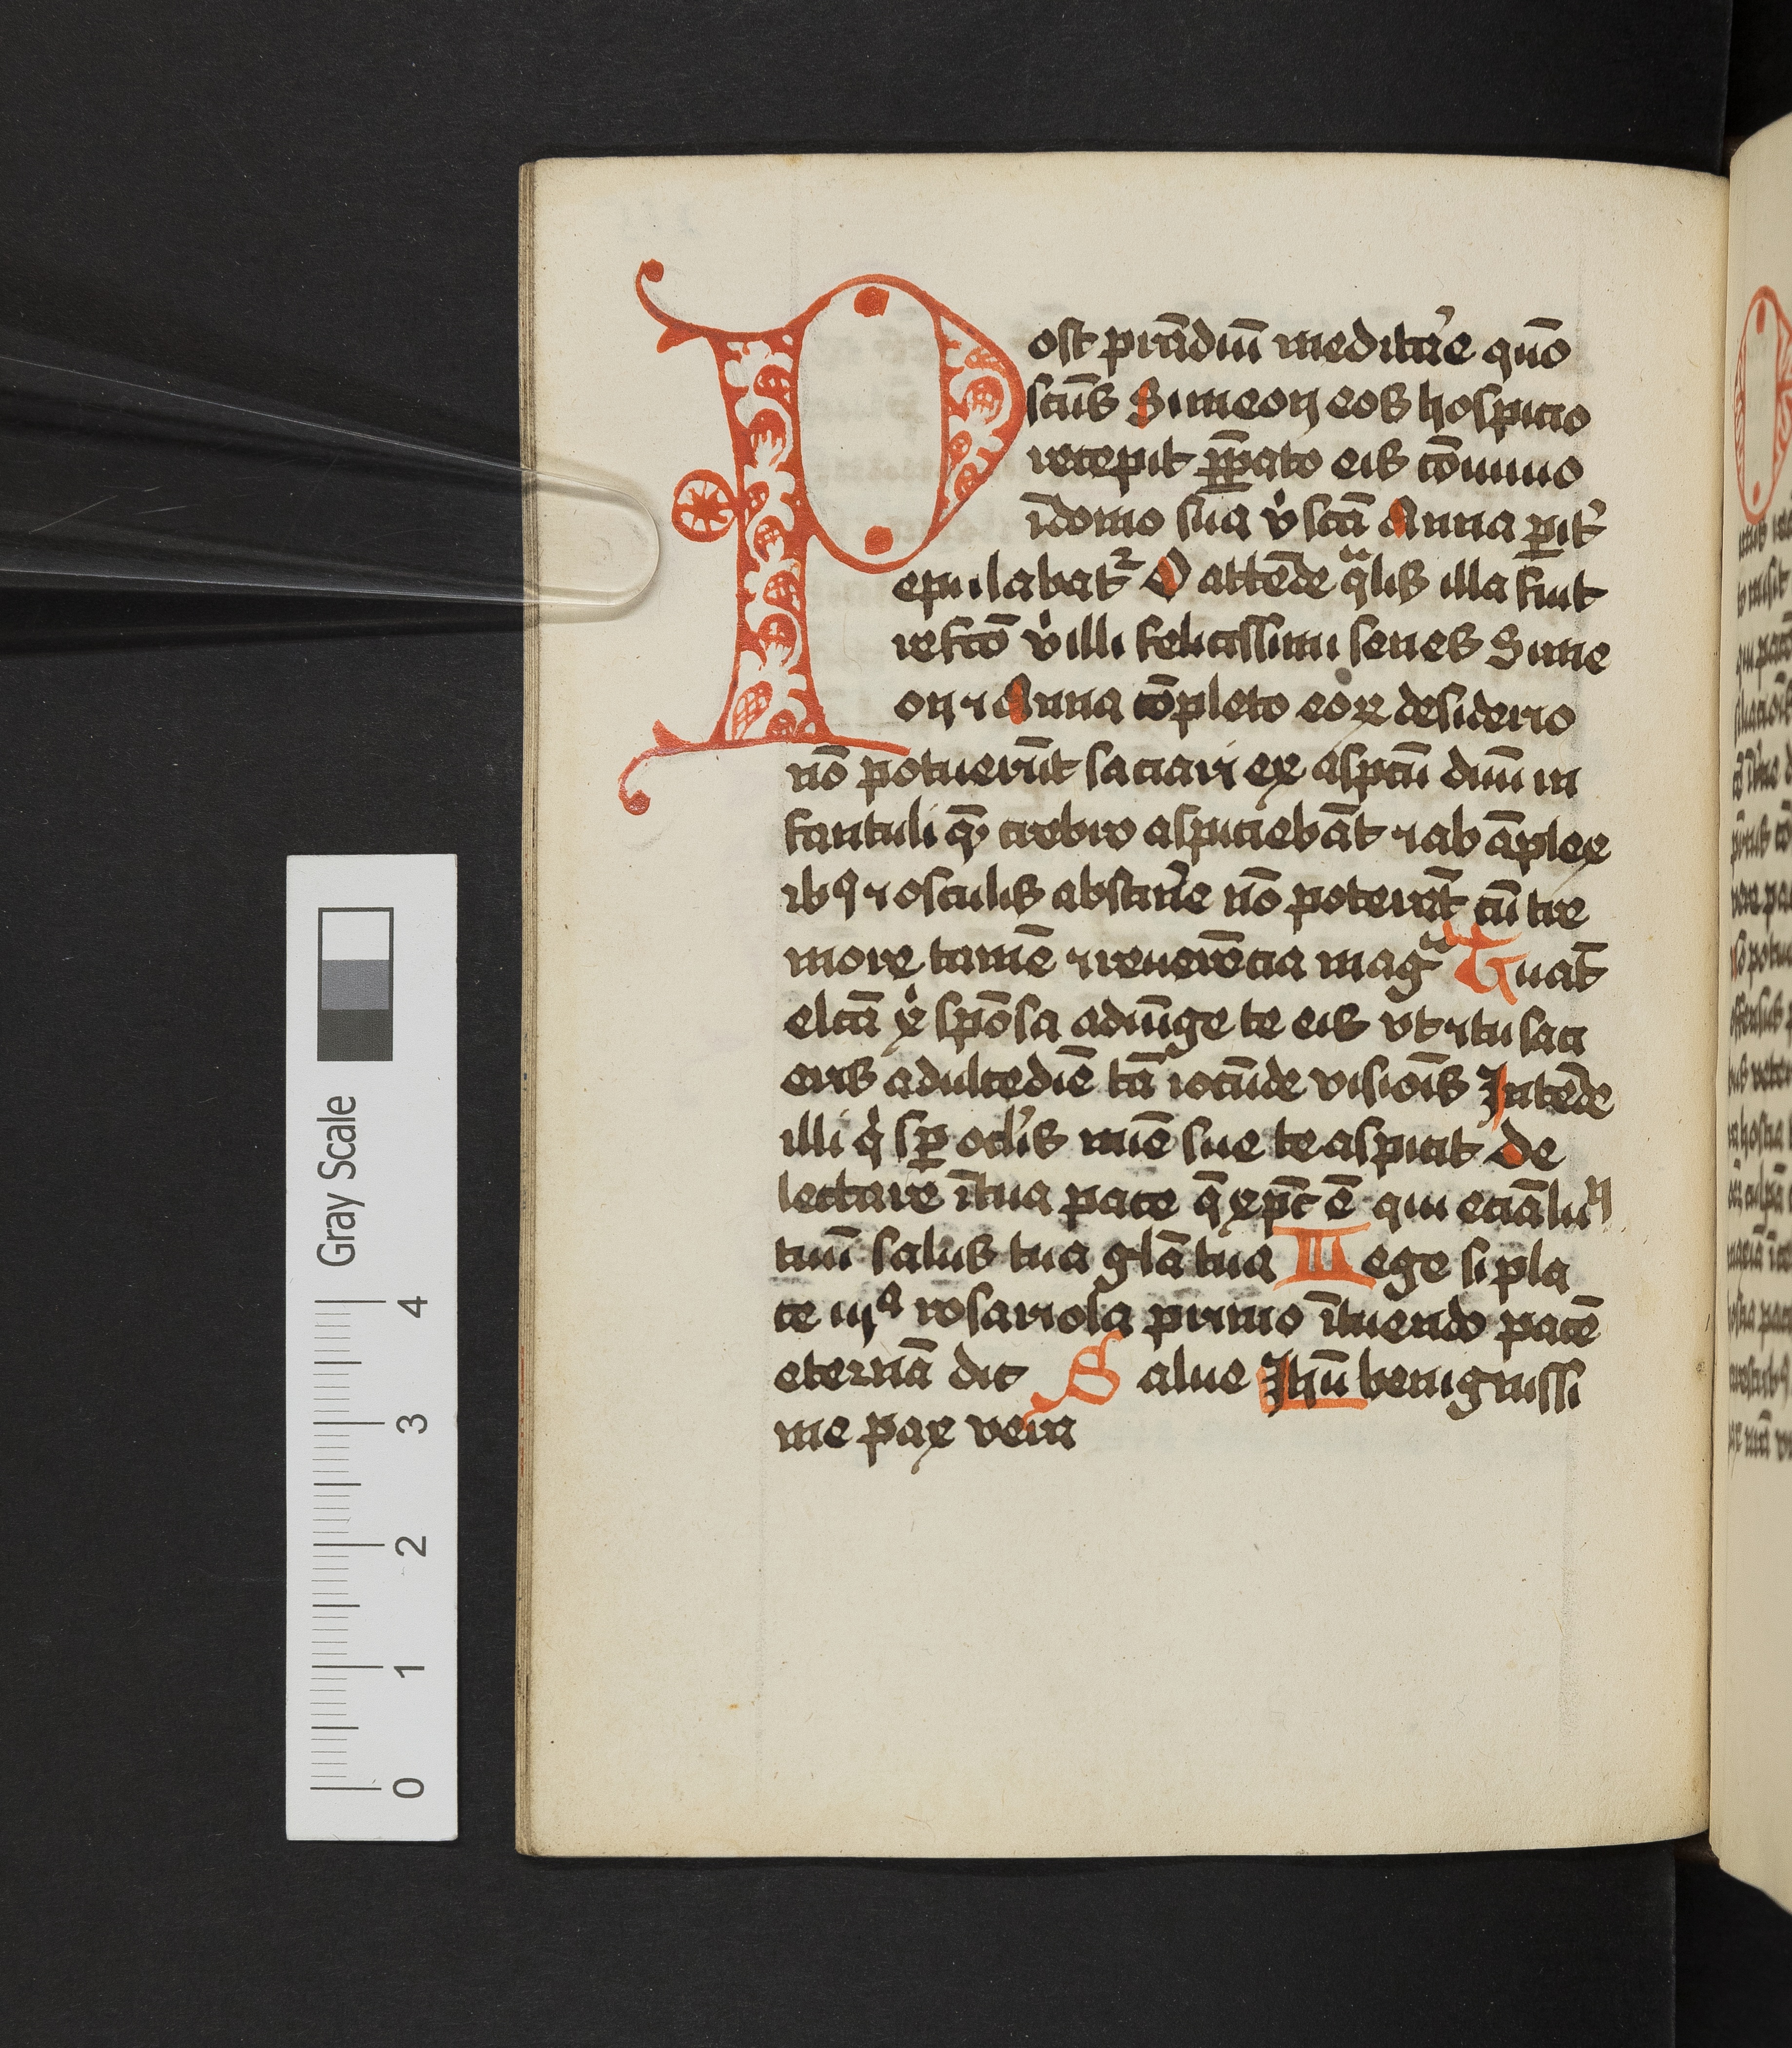 Post pra̅diu̅ meditar̛e quo̅
sctu̅s Simeon eos hospicio
recepit p̲p̅ato eis co̅uiuio
i̅domo sua vͥ scta̅ Anna p̲it̛
epulabat᷑ O atte̅de qᷓlis illa fuit
refcto̅ vͥ illi felicissimi senes Sime
on ⁊ Anna co̅pleto eoꝝ desiderio
no̅ potueru̅t saciari ex aspctu̅ diui̅ in
fantuli qᷓ crebro aspicieba̅t ⁊ ab a̅plex
ibꝯ ⁊ osculis abstiner̛e no̅ potera̅t cu̅ tre
more tame̅ ⁊ reuere̅cia magᷓ Euat̅
elcta̅ xͥ spo̅sa adiu̅ge te eis vt ⁊ tu saci
eris adulcedie̅ ta̅ iocu̅de visiois̅ Inte̅de
illi qͥ sp̲ ocl̛is mie̅ sue te aspicit De
lectare i̅tua pace q̅ xp̅c e̅ qui ecia̅ lu̅
tuu̅ salus tua gla̅ tua Lege si pla
ce iijᵃ rosariola primo i̅tuendo pace̅
eterna̅ dic Salue Ihu̅ benignissi
me pax vein
Gray Scale
0 1 2 3 4